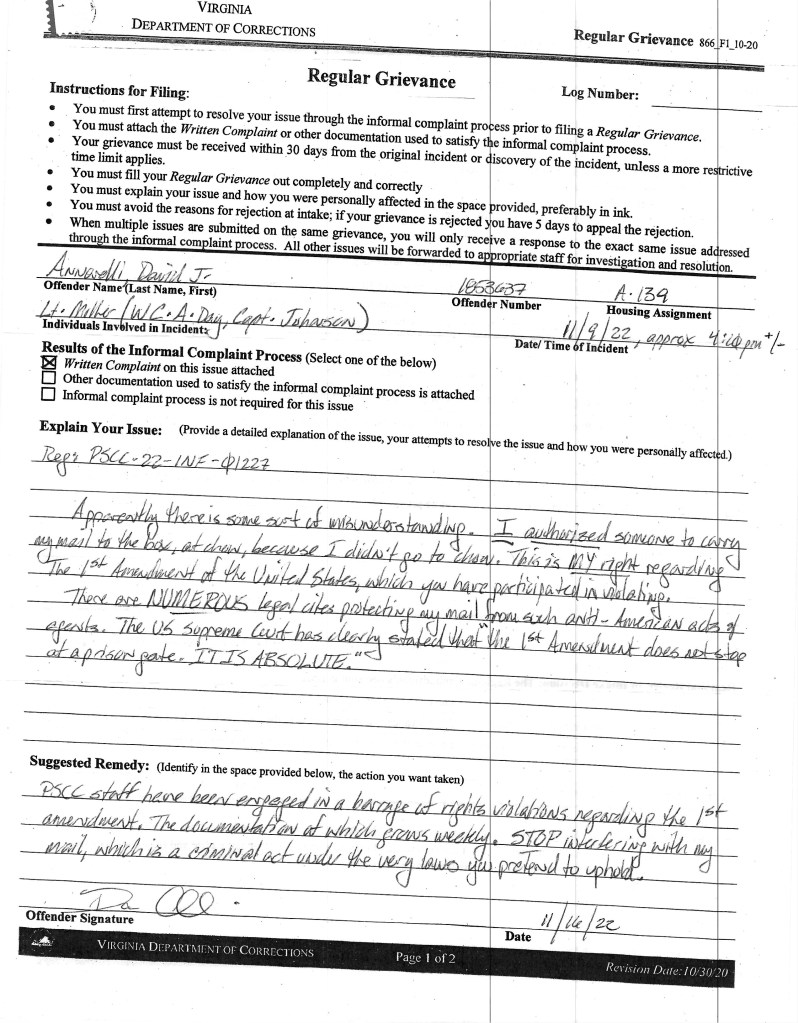 VIRGINIA
DEPARTMENT OF CORRECTIONS
Regular Grievance 866_F1_10-20
Regular Grievance
Instructions for Filing:
Log Number:
• You must first attempt to resolve your issue through the informal complaint process prior to filing a Regular Grievance.
• You must attach the Written Complaint or other documentation used to satisfy the informal complaint process.
• Your grievance must be received within 30 days from the original incident or discovery of the incident, unless a more restrictive
time limit applies.
• You must fill your Regular Grievance out completely and correctly
• You must explain your issue and how you were personally affected in the space provided, preferably in ink.
• You must avoid the reasons for rejection at intake; if your grievance is rejected you have 5 days to appeal the rejection.
• When multiple issues are submitted on the same grievance, you will only receive a response to the exact same issue addressed
through the informal complaint process. All other issues will be forwarded to appropriate staff for investigation and resolution.
David Jr. 1853637 A-139
Offender Name (Last Name, First) Offender Number Housing Assignment
Lt. Miller (W.C.A. Day, Capt. Johnson) 11/9/22, approx 4:10 pm +/-
Individuals Involved in Incident: Date/ Time of Incident
Results of the Informal Complaint Process (Select one of the below)
☒ Written Complaint on this issue attached
☐ Other documentation used to satisfy the informal complaint process is attached
☐ Informal complaint process is not required for this issue
Explain Your Issue: (Provide a detailed explanation of the issue, your attempts to resolve the issue and how you were personally affected.)
PSCC-22-INF-01227
Apparently there is some sort of misunderstanding. I authorized someone to carry
my mail to the box, at chow, because I didn't go to chow. This is MY right regarding
The 1st Amendment of the United States, which you have participated in violating.
There are NUMEROUS legal cites protecting my mail from such anti-American acts of
agents. The US Supreme Court has clearly stated that "the 1st Amendment does not stop
at a prison gate. IT IS ABSOLUTE."
Suggested Remedy: (Identify in the space provided below, the action you want taken)
PSCC staff have been engaged in a barrage of rights violations regarding the 1st
amendment. The documentation of which grows weekly. STOP interfering with my
mail, which is a criminal act under the very laws you pretend to uphold.
Offender Signature Date 11/16/22
VIRGINIA DEPARTMENT OF CORRECTIONS Page 1 of 2 Revision Date: 10/30/20